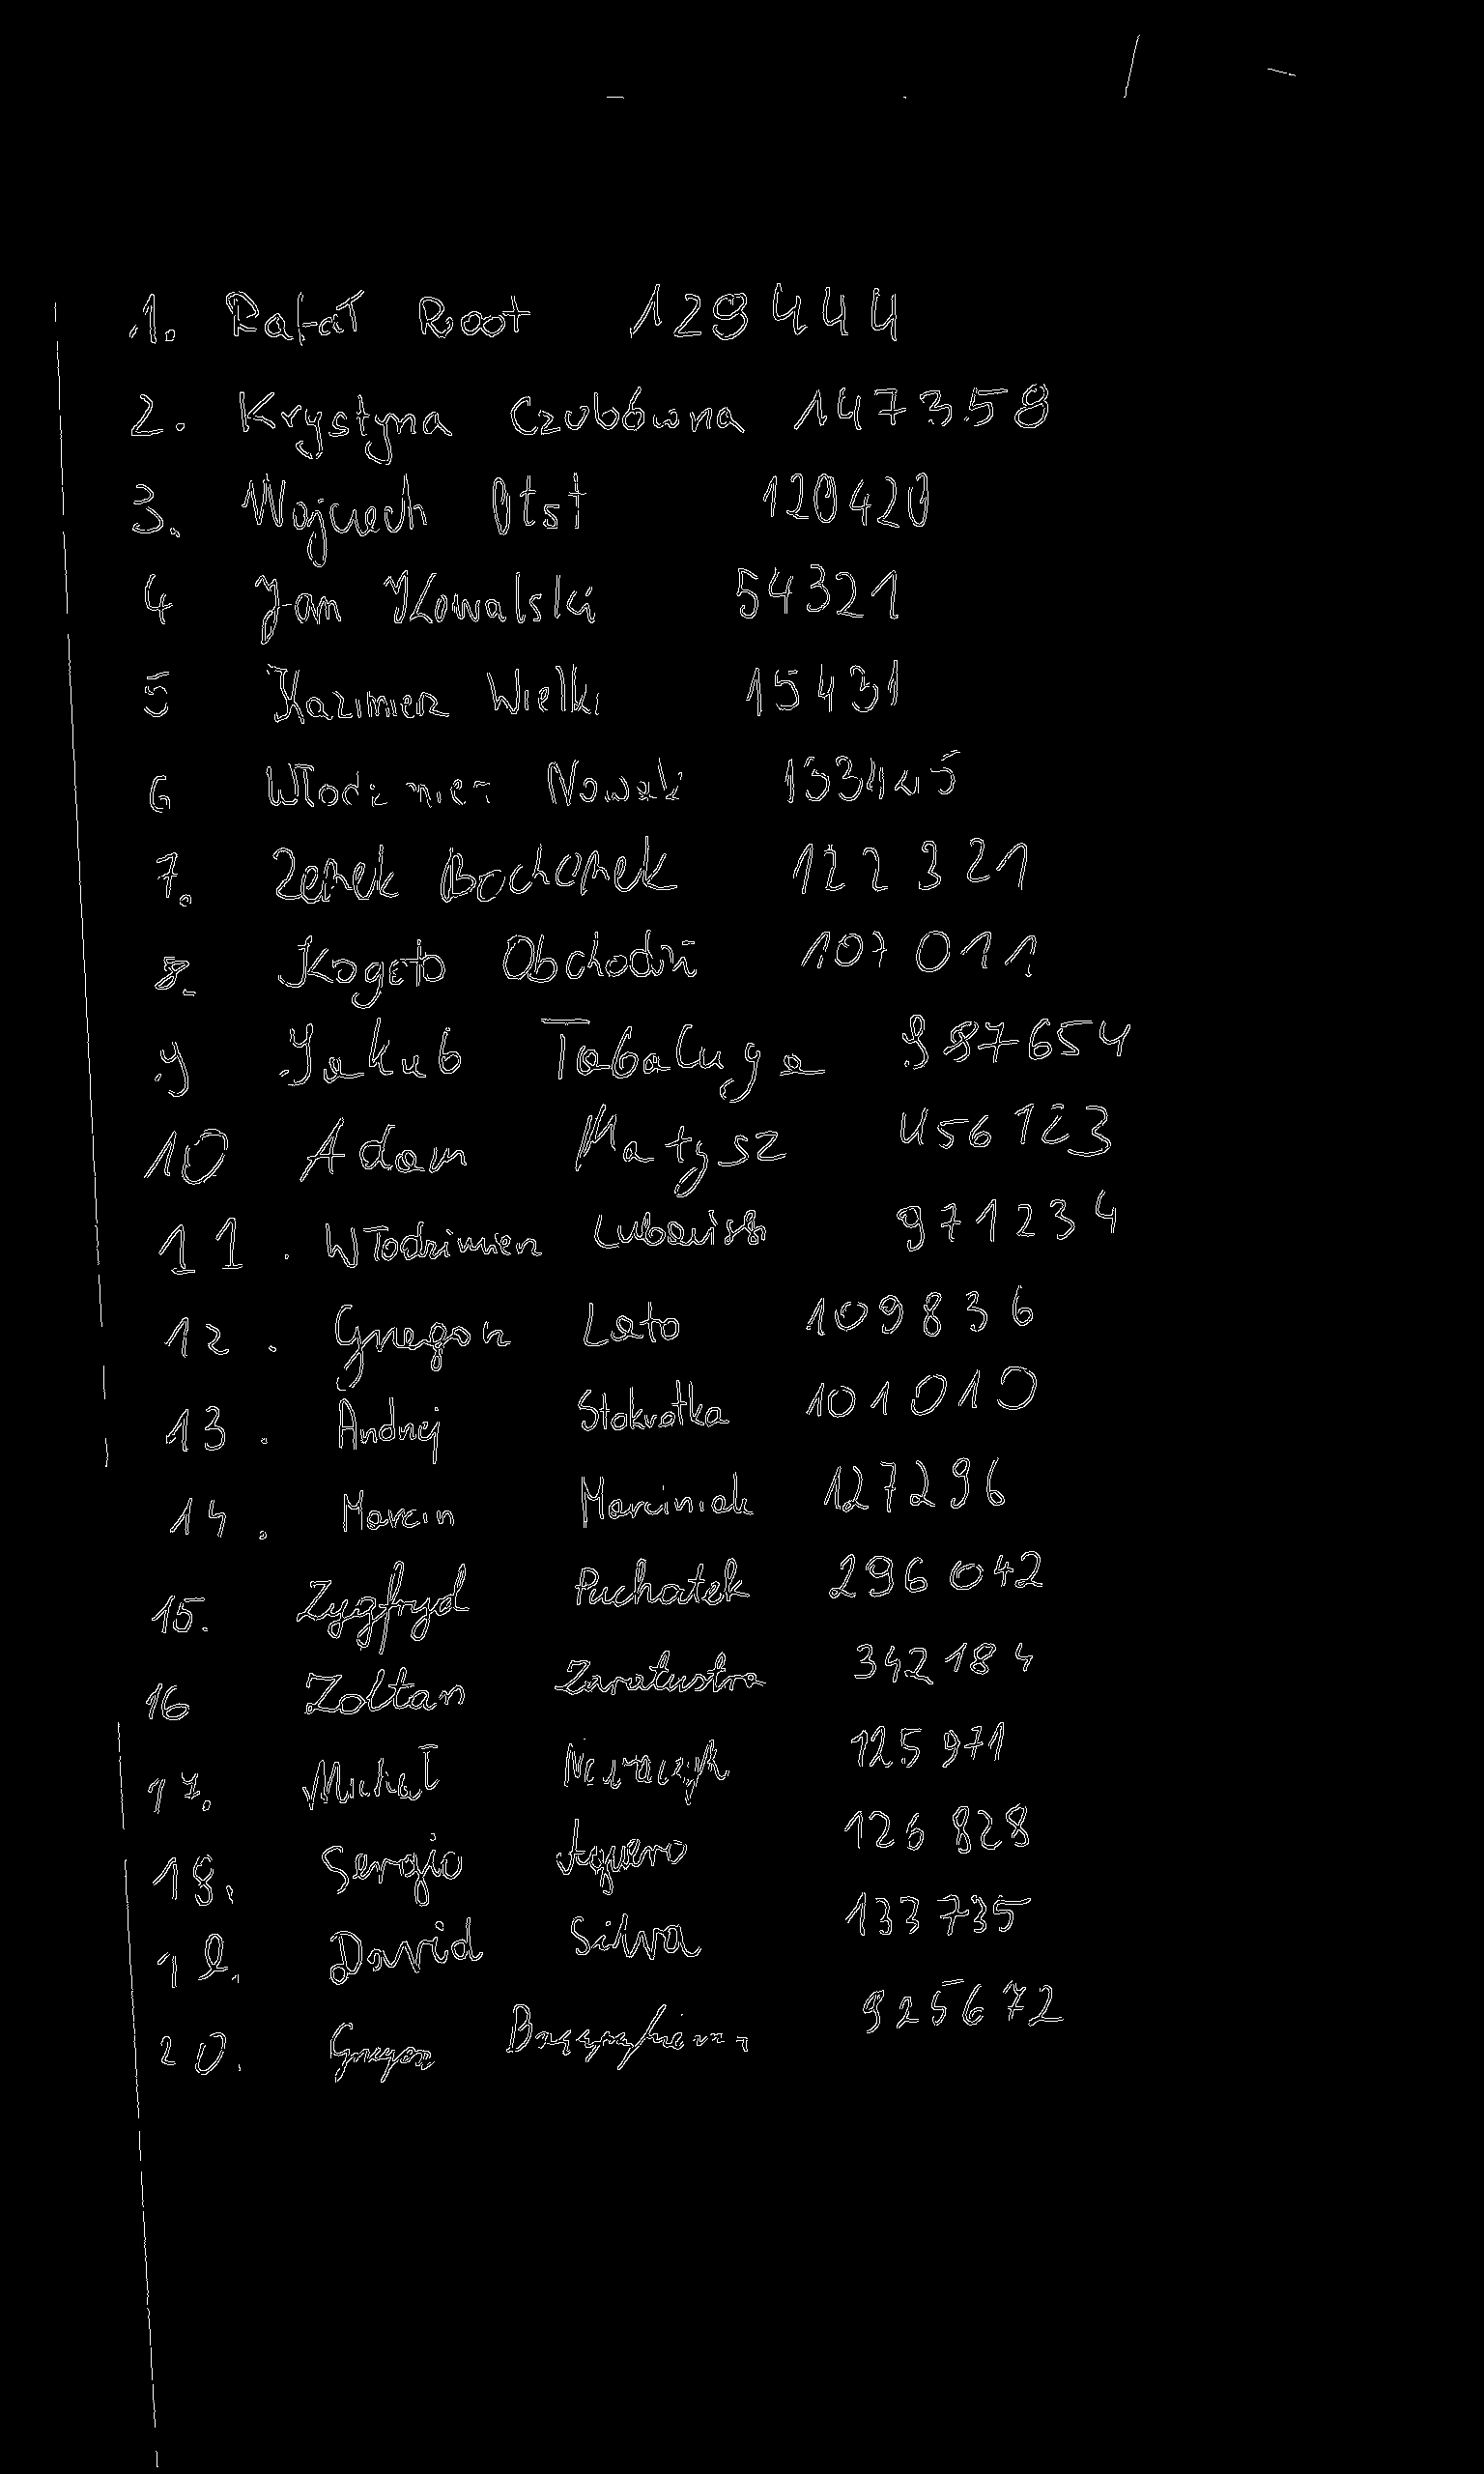 1. Rafał Root 129444
2. Krystyna Czubówna 147358
3. Wojciech Otst 120420
4 Jan Kowalski 54321
5 Kazimierz Wielki 15431
6 Włodzimierz Nowak 133445
7. Zenek Bochenek 122321
8. Kogoto Obchodzi 107011
9 Jakub Tabaluga 987654
10 Adam Matysz 456123
11. Włodzimierz 971234
12. Grzegorz Lato 109836
13. Andrzej Stokrotka 101010
14. Marcin Marciniak 127296
15. Zygfryd Puchatek 296042
16 Zoltan Zaratustra 342184
17. Michał 125971
18. Sergio Aguero 126828
19. David Silva 133735
20. Grzegorz 925672